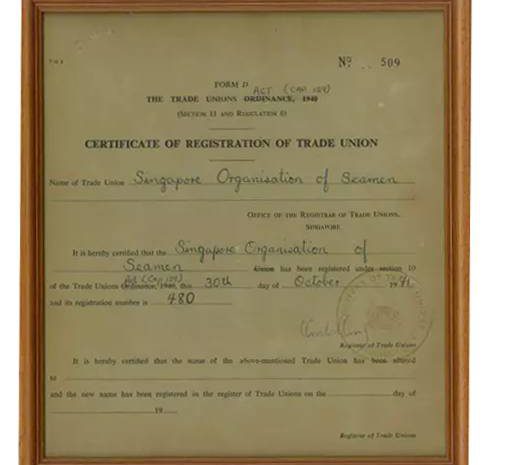 Nº 509
FORM D
ACT (CAP 129)
THE TRADE UNIONS ORDINANCE, 1940
(SECTION 11 AND REGULATION 6)
CERTIFICATE OF REGISTRATION OF TRADE UNION
Name of Trade Union Singapore Organisation of Seamen
OFFICE OF THE REGISTRAR OF TRADE UNIONS,
SINGAPORE
It is hereby certified that the Singapore Organisation of
Seamen Union has been registered under section 10
Act (Cap 129)
of the Trade Unions Ordinance, 1940, this 30th day of October 19
and its registration number is 480
Registrar of Trade Unions
It is hereby certified that the name of the above-mentioned Trade Union has been altered
to
and the new name has been registered in the register of Trade Unions on the day of
19
Registrar of Trade Unions